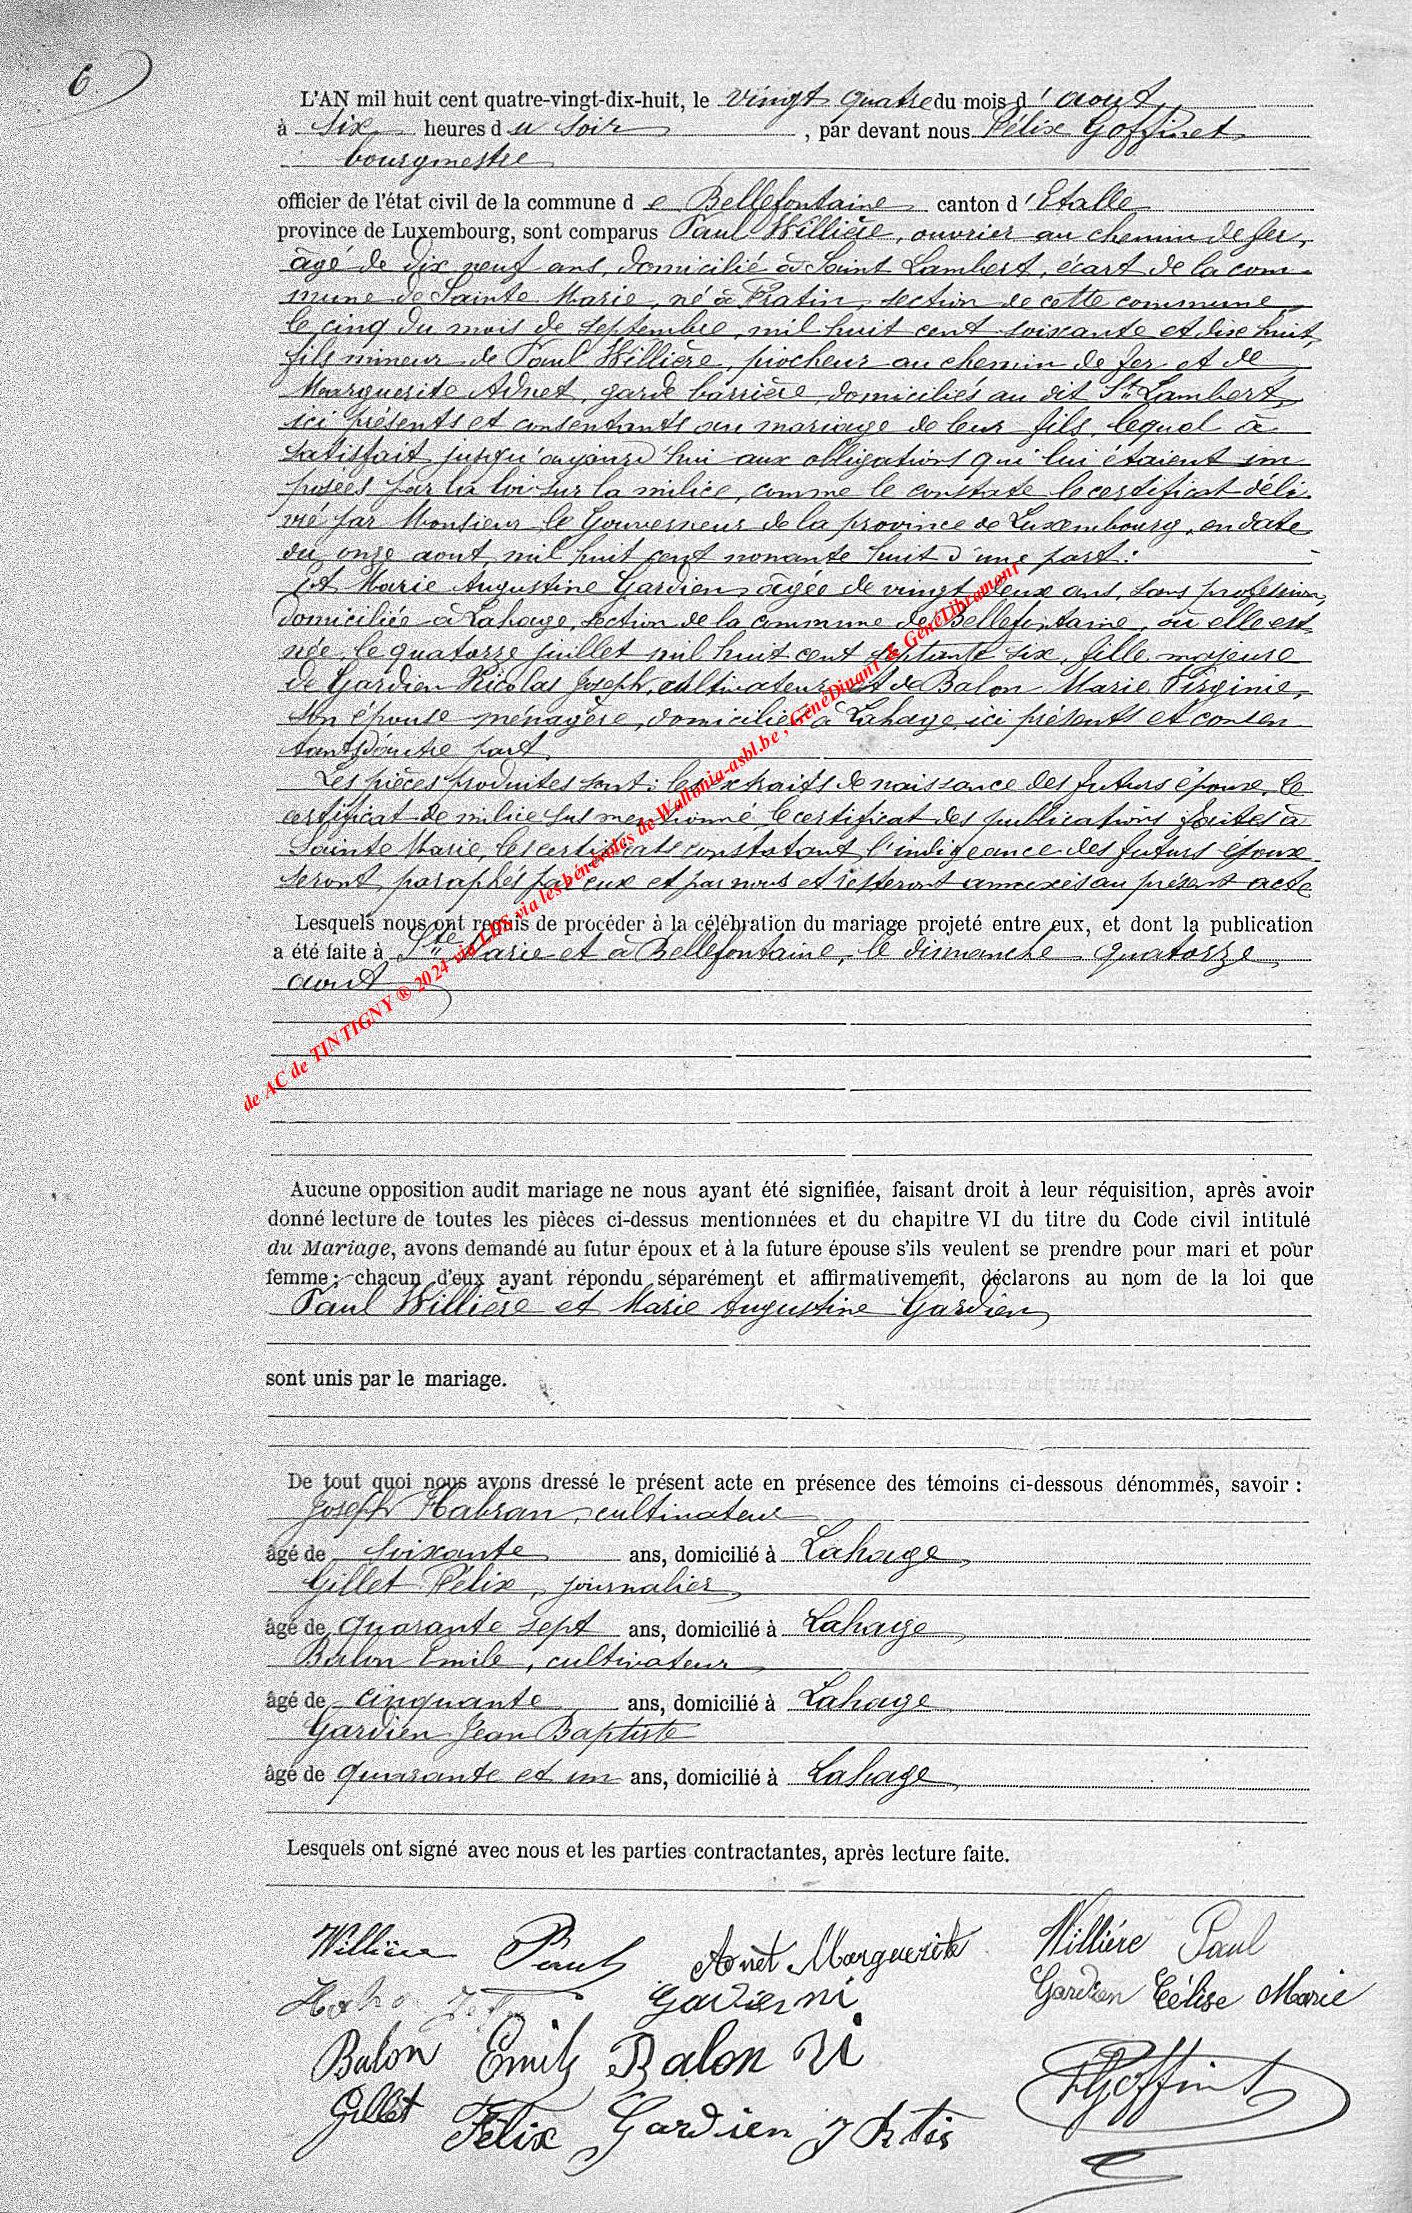 6
L'AN mil huit cent quatre-vingt-dix-huit, le vingt quatre du mois d'aout
à six heures du soir, par devant nous Félix Goffinet
bourgmestre
officier de l'état civil de la commune de Bellefontaine canton d'Etalle
province de Luxembourg, sont comparus Paul Willière, ouvrier au chemin de fer,
âgé de dix neuf ans, domicilié à Saint Lambert, écart de la com-
mune de Sainte Marie, né à Fratin, section de cette commune
le cinq du mois de septembre, mil huit cent soixante et dix huit,
fils mineur de Paul Willière, piocheur au chemin de fer et de
Marguerite Adnet, garde barrière, domiciliés au dit St Lambert,
ici présents et consentants au mariage de leur fils, lequel à
satisfait jusqu'aujourd'hui aux obligations qui lui étaient im
posées par la loi sur la milice, comme le constate le certificat déli-
vré par Monsieur le Gouverneur de la province de Luxembourg, en date
du onze aout mil huit cent nonante huit d'une part:
Et Marie Augustine Gardien, âgée de vingt deux ans, sans profession,
domiciliée à Lahage, section de la commune de Bellefontaine, où elle est
née, le quatorze juillet mil huit cent septante six, fille majeure
de Gardien Nicolas Joseph, cultivateur et de Balon Marie Virginie,
son épouse ménagère, domiciliés à Lahage, ici présents et consen
tants d'autre part.
Les pièces produites sont: les extraits de naissance des futurs époux, le
certificat de milice sus mentionné, le certificat des publications faites à
Sainte Marie, les certificats constatant l'indigeance des futurs époux
seront paraphés par eux et par nous et resteront annexés au présent acte
Lesquels nous ont requis de procéder à la célébration du mariage projeté entre eux, et dont la publication
a été faite à Ste Marie et à Bellefontaine, le dimanche quatorze
aout
de AC de TINTIGNY ® 2024 via LDS via les bénévoles de Wallonia-asbl.be , GénéDinant & GénéLibramont
Aucune opposition audit mariage ne nous ayant été signifiée, faisant droit à leur réquisition, après avoir
donné lecture de toutes les pièces ci-dessus mentionnées et du chapitre VI du titre du Code civil intitulé
du Mariage, avons demandé au futur époux et à la future épouse s'ils veulent se prendre pour mari et pour
femme; chacun d'eux ayant répondu séparément et affirmativement, déclarons au nom de la loi que
Paul Willière et Marie Augustine Gardien
sont unis par le mariage.
De tout quoi nous avons dressé le présent acte en présence des témoins ci-dessous dénommés, savoir :
Joseph Habran, cultivateur
âgé de soixante ans, domicilié à Lahage,
Gillet Félix, journalier,
âgé de quarante sept ans, domicilié à Lahage
Balon Emile, cultivateur
âgé de cinquante ans, domicilié à Lahage
Gardien Jean Baptiste
âgé de quarante et un ans, domicilié à Lahage
Lesquels ont signé avec nous et les parties contractantes, après lecture faite.
Willière Paul Adnet Marguerite Willière Paul
Gardien ni Gardien Marie
Balon Emile Balon
FGoffinet
Gillet Félix Gardien J